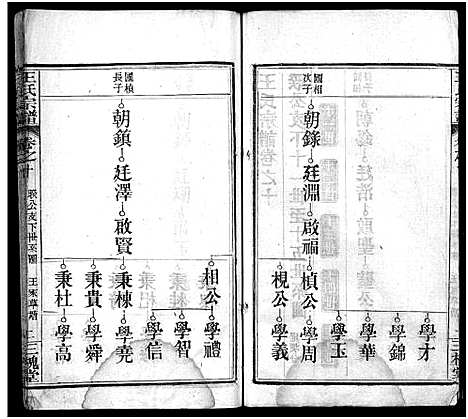 國相
次子
朝錄
廷淵
啟福
楨公
學才
學錦
學華
學玉
學周
梘公
學義
王氏宗譜
卷之十
王宋草婿
三槐堂
國楨
長子
朝鎮
廷澤
啟賢
相公
學禮
學智
學信
秉棟
學堯
秉貴
學舜
秉杜
學高